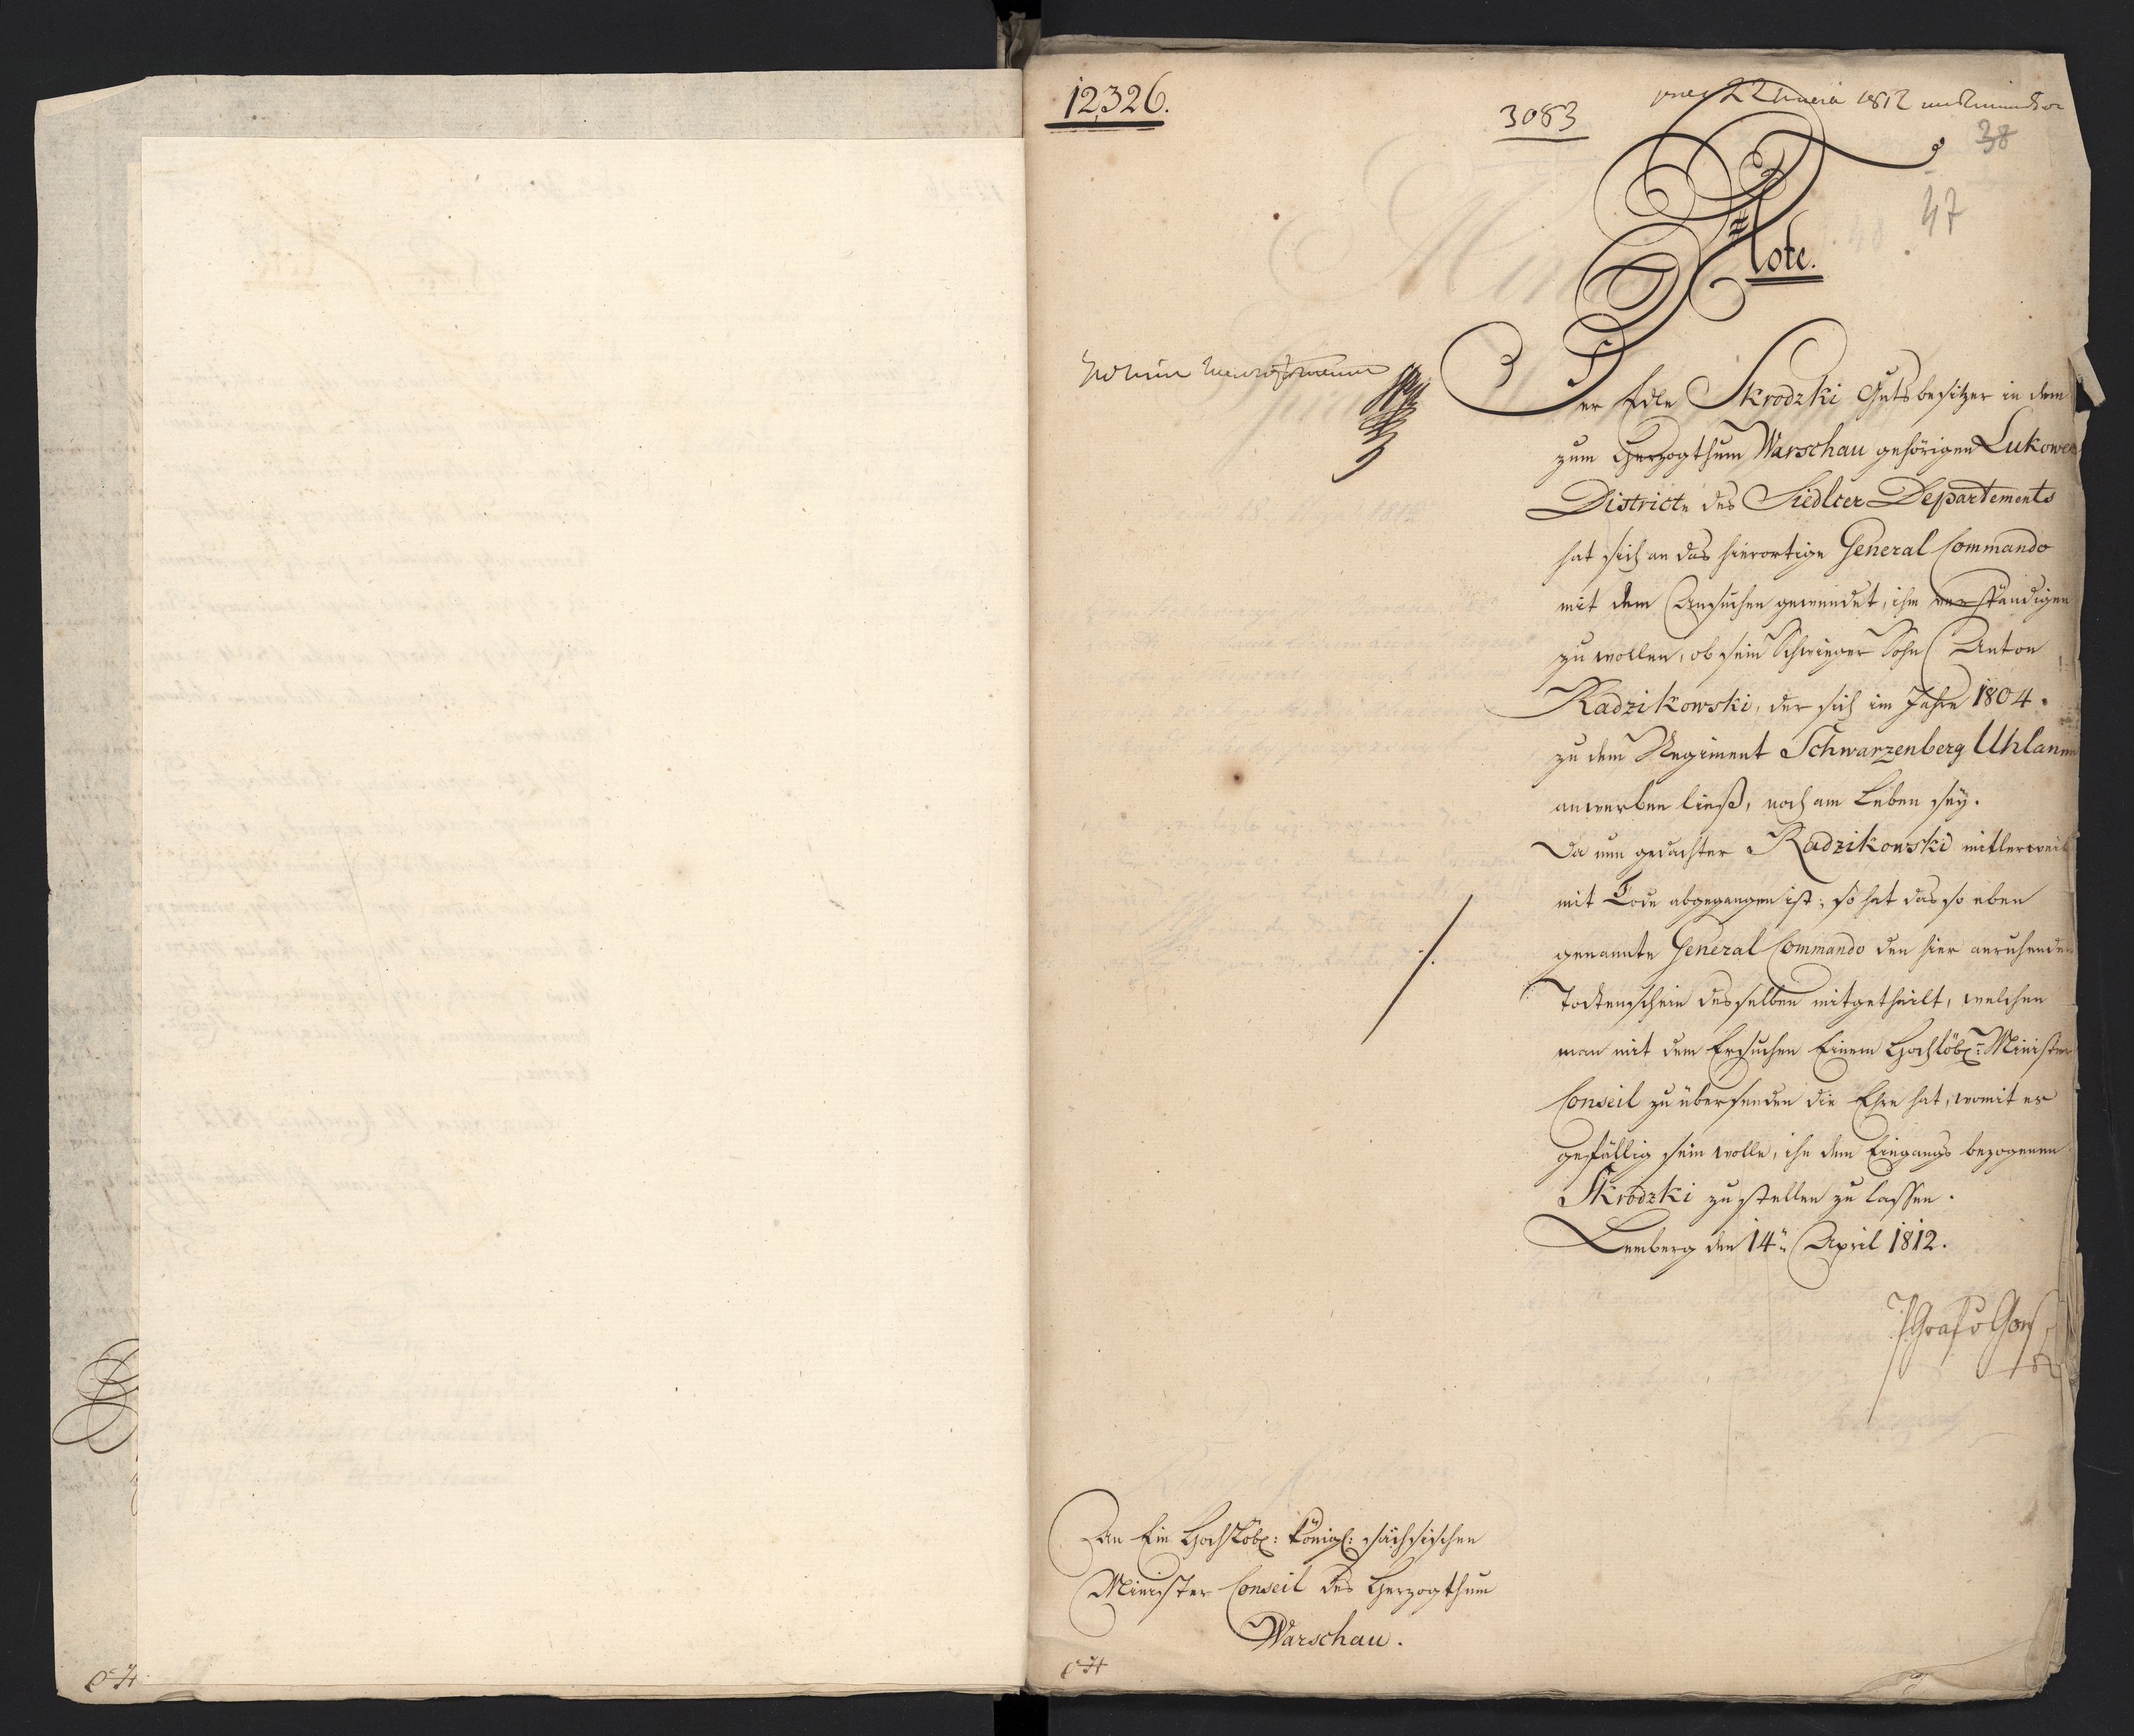 12,326.
3083
22 1812
38
47
Note.
Der Edle Skrodzki Gutsbesitzer in dem
zum Herzogthum Warschau gehörigen Lukower
Districte des Siedlcer Departements
hat sich an das hierortige General Commando
mit dem Ansuchen gewendet, ihm verständigen
zu wollen, ob sein Schwieger Sohn Anton
Radzikowski, der sich im Jahre 1804.
zu dem Regiment Schwarzenberg Uhlanen
anwerben ließ, noch am Leben sey.
Da nun gedachter Radzikowski mitlerweil
mit Tode abgegangen ist; so hat das so eben
genannte General Commando den hier anruhenden
Todtenschein desselben mitgetheilt, welchen
man mit dem Ersuchen Einem Hochlöbl: Minister
Conseil zu übersenden die Ehre hat, womit es
gefällig sein wolle, ihn dem Eingangs bezogenen
Skrodzki zustellen zu lassen.
Lemberg den 14n April 1812.
Graf v Goeß
./.
An Ein Hochlöbl: königl: sächsischen
Minister Conseil des Herzogthum
Warschau.